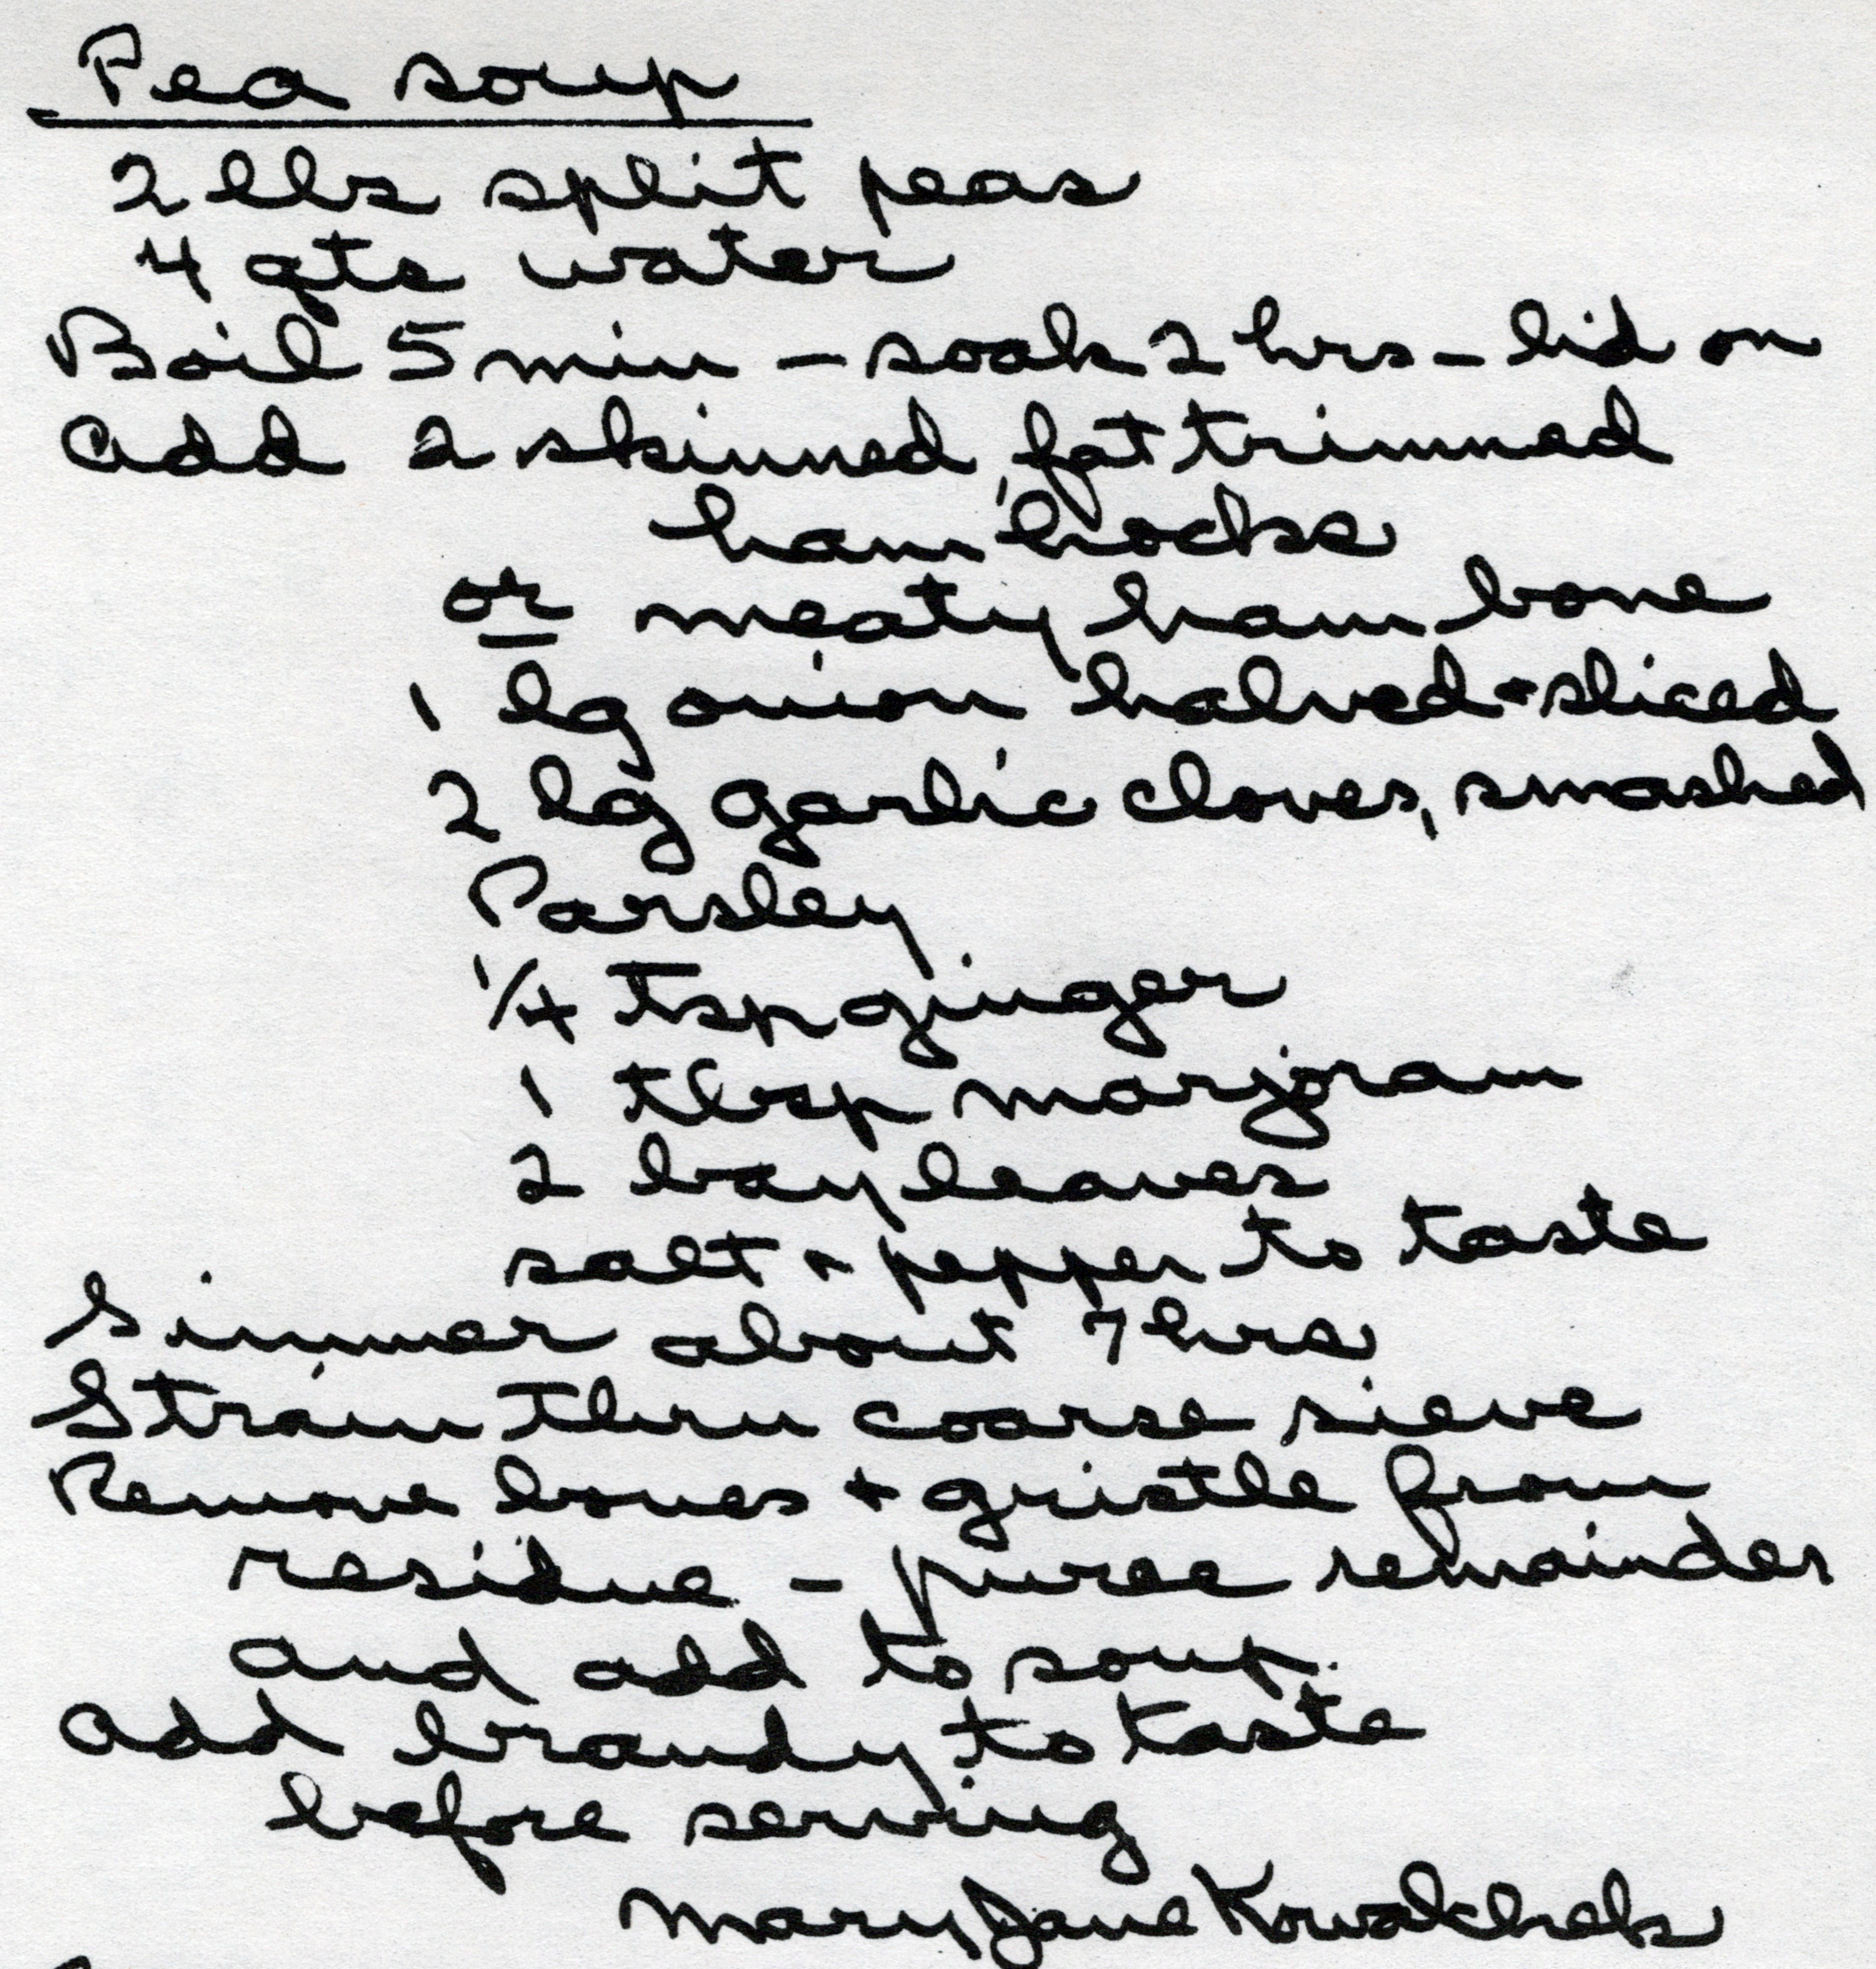 Pea soup
2 lbs split peas
4 qts water
Boil 5 min - soak 2 hrs - lid on
Add 2 skinned, fat trimmed
ham hocks
or meaty ham bone
1 lg onion halved + sliced
2 lg garlic cloves, smashed
Parsley
1/4 tsp ginger
1 tbsp marjoram
2 bay leaves
salt + pepper to taste
Simmer about 7 hrs
Strain thru coarse sieve
Remove bones + gristle from
residue - puree remainder
and add to soup.
Add brandy to taste
before serving
Mary Jane